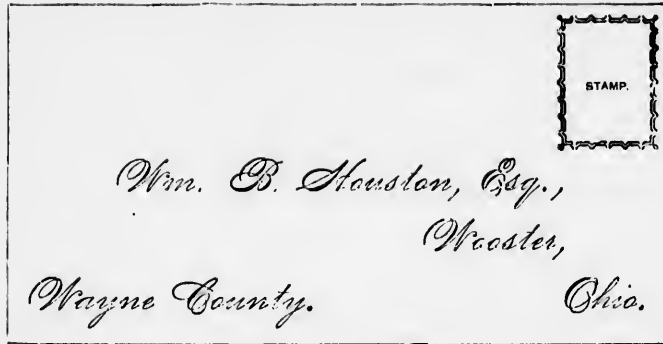 STAMP.
Wm. B. Houston, Esq.,
Wooster,
Wayne County. Ohio.